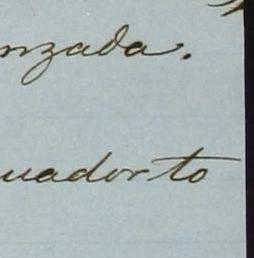 nzada.
uador to